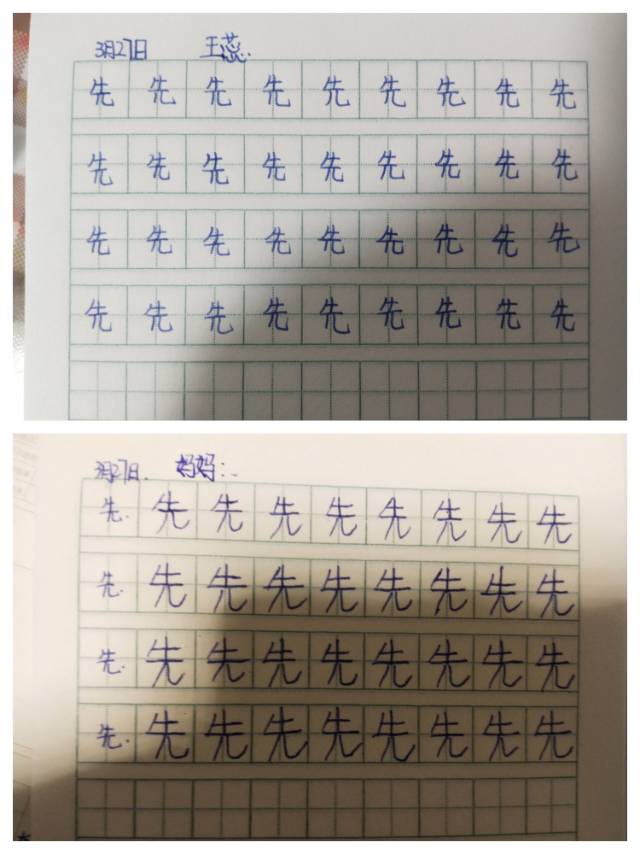 3月27日 王蕊.
先 先 先 先 先 先 先 先 先
先 先 先 先 先 先 先 先 先
先 先 先 先 先 先 先 先 先
先 先 先 先 先 先 先 先 先
3月27日. 妈妈:.
先. 先 先 先 先 先 先 先 先
先. 先 先 先 先 先 先 先 先
先. 先 先 先 先 先 先 先 先
先. 先 先 先 先 先 先 先 先